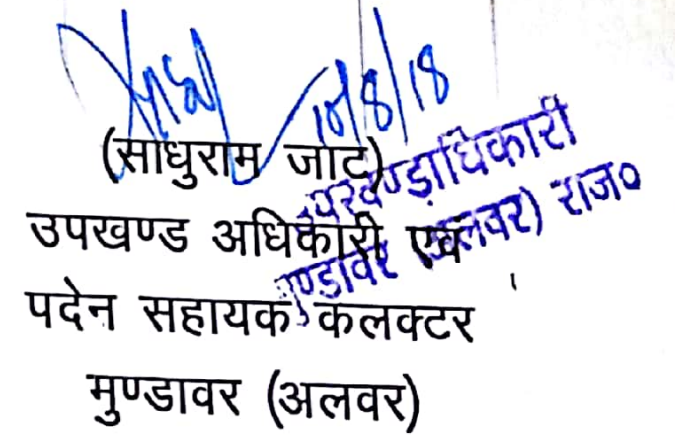 10/8/18
(साधुराम जाट)
उपखण्ड अधिकारी एवं
पदेन सहायक कलक्टर
मुण्डावर (अलवर)
उपखण्डाधिकारी
मुण्डावर (अलवर) राज०